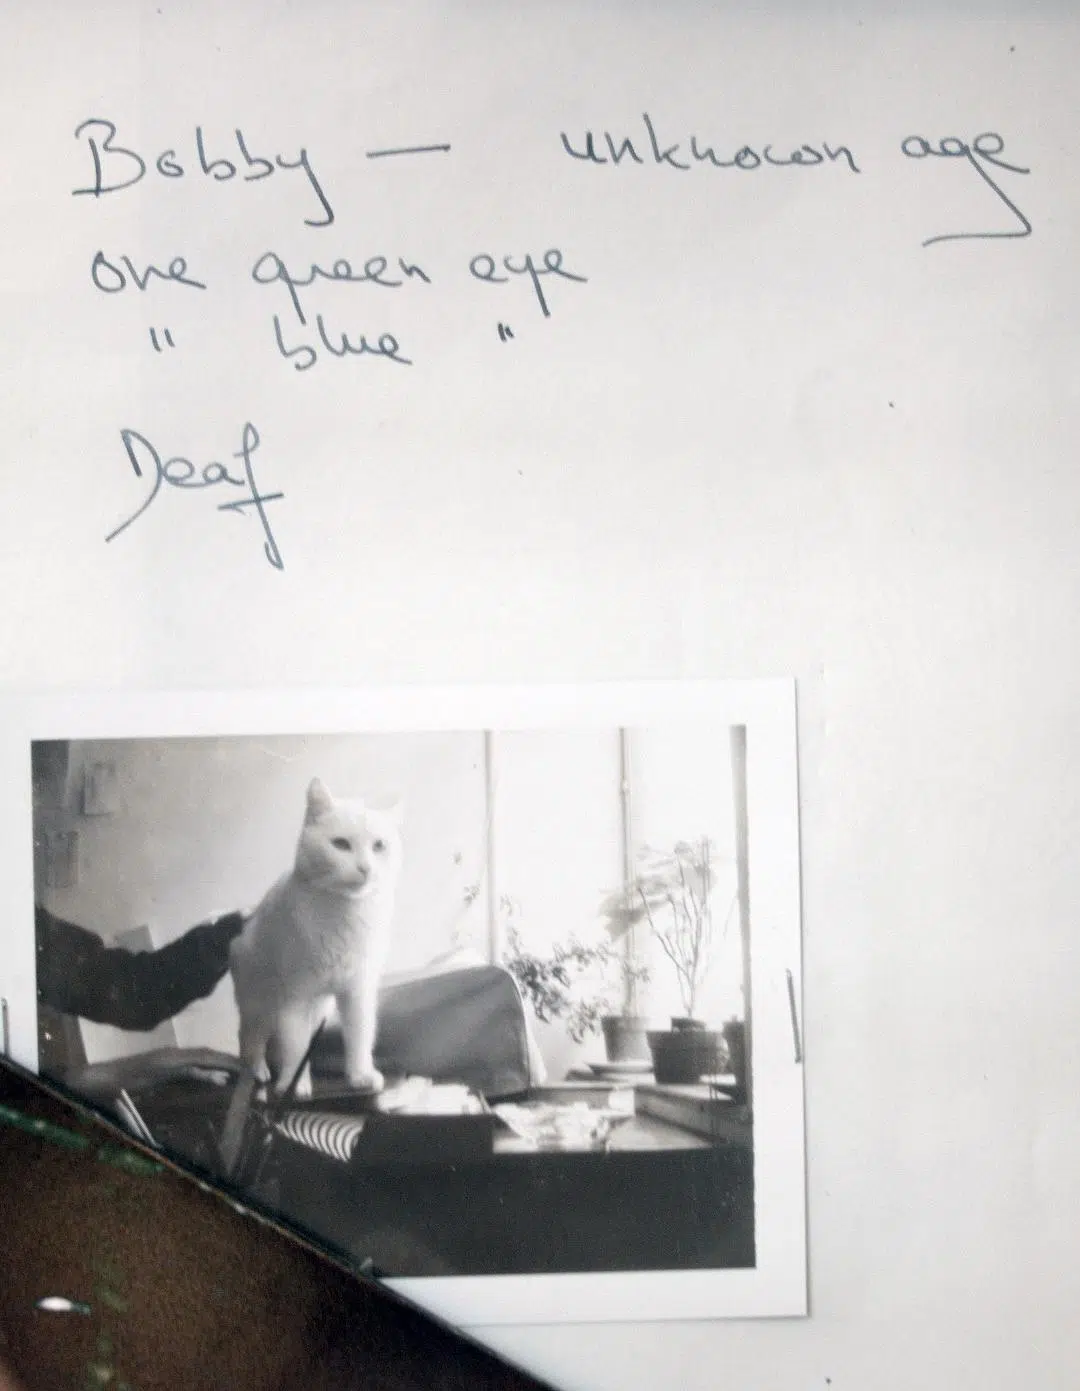 Bobby — unknown age
one green eye
" blue "
Deaf